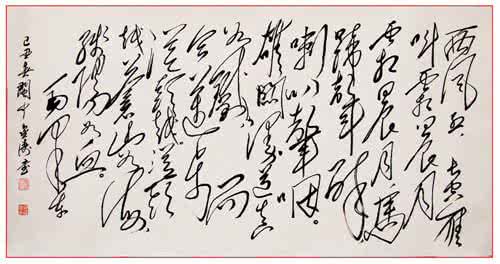 西风烈 长空雁
叫霜晨月
霜晨月 马
蹄声碎
喇叭声咽
雄关漫道真
如铁 而
今迈步
从头越从头
越苍山如海
残阳如血
己丑春